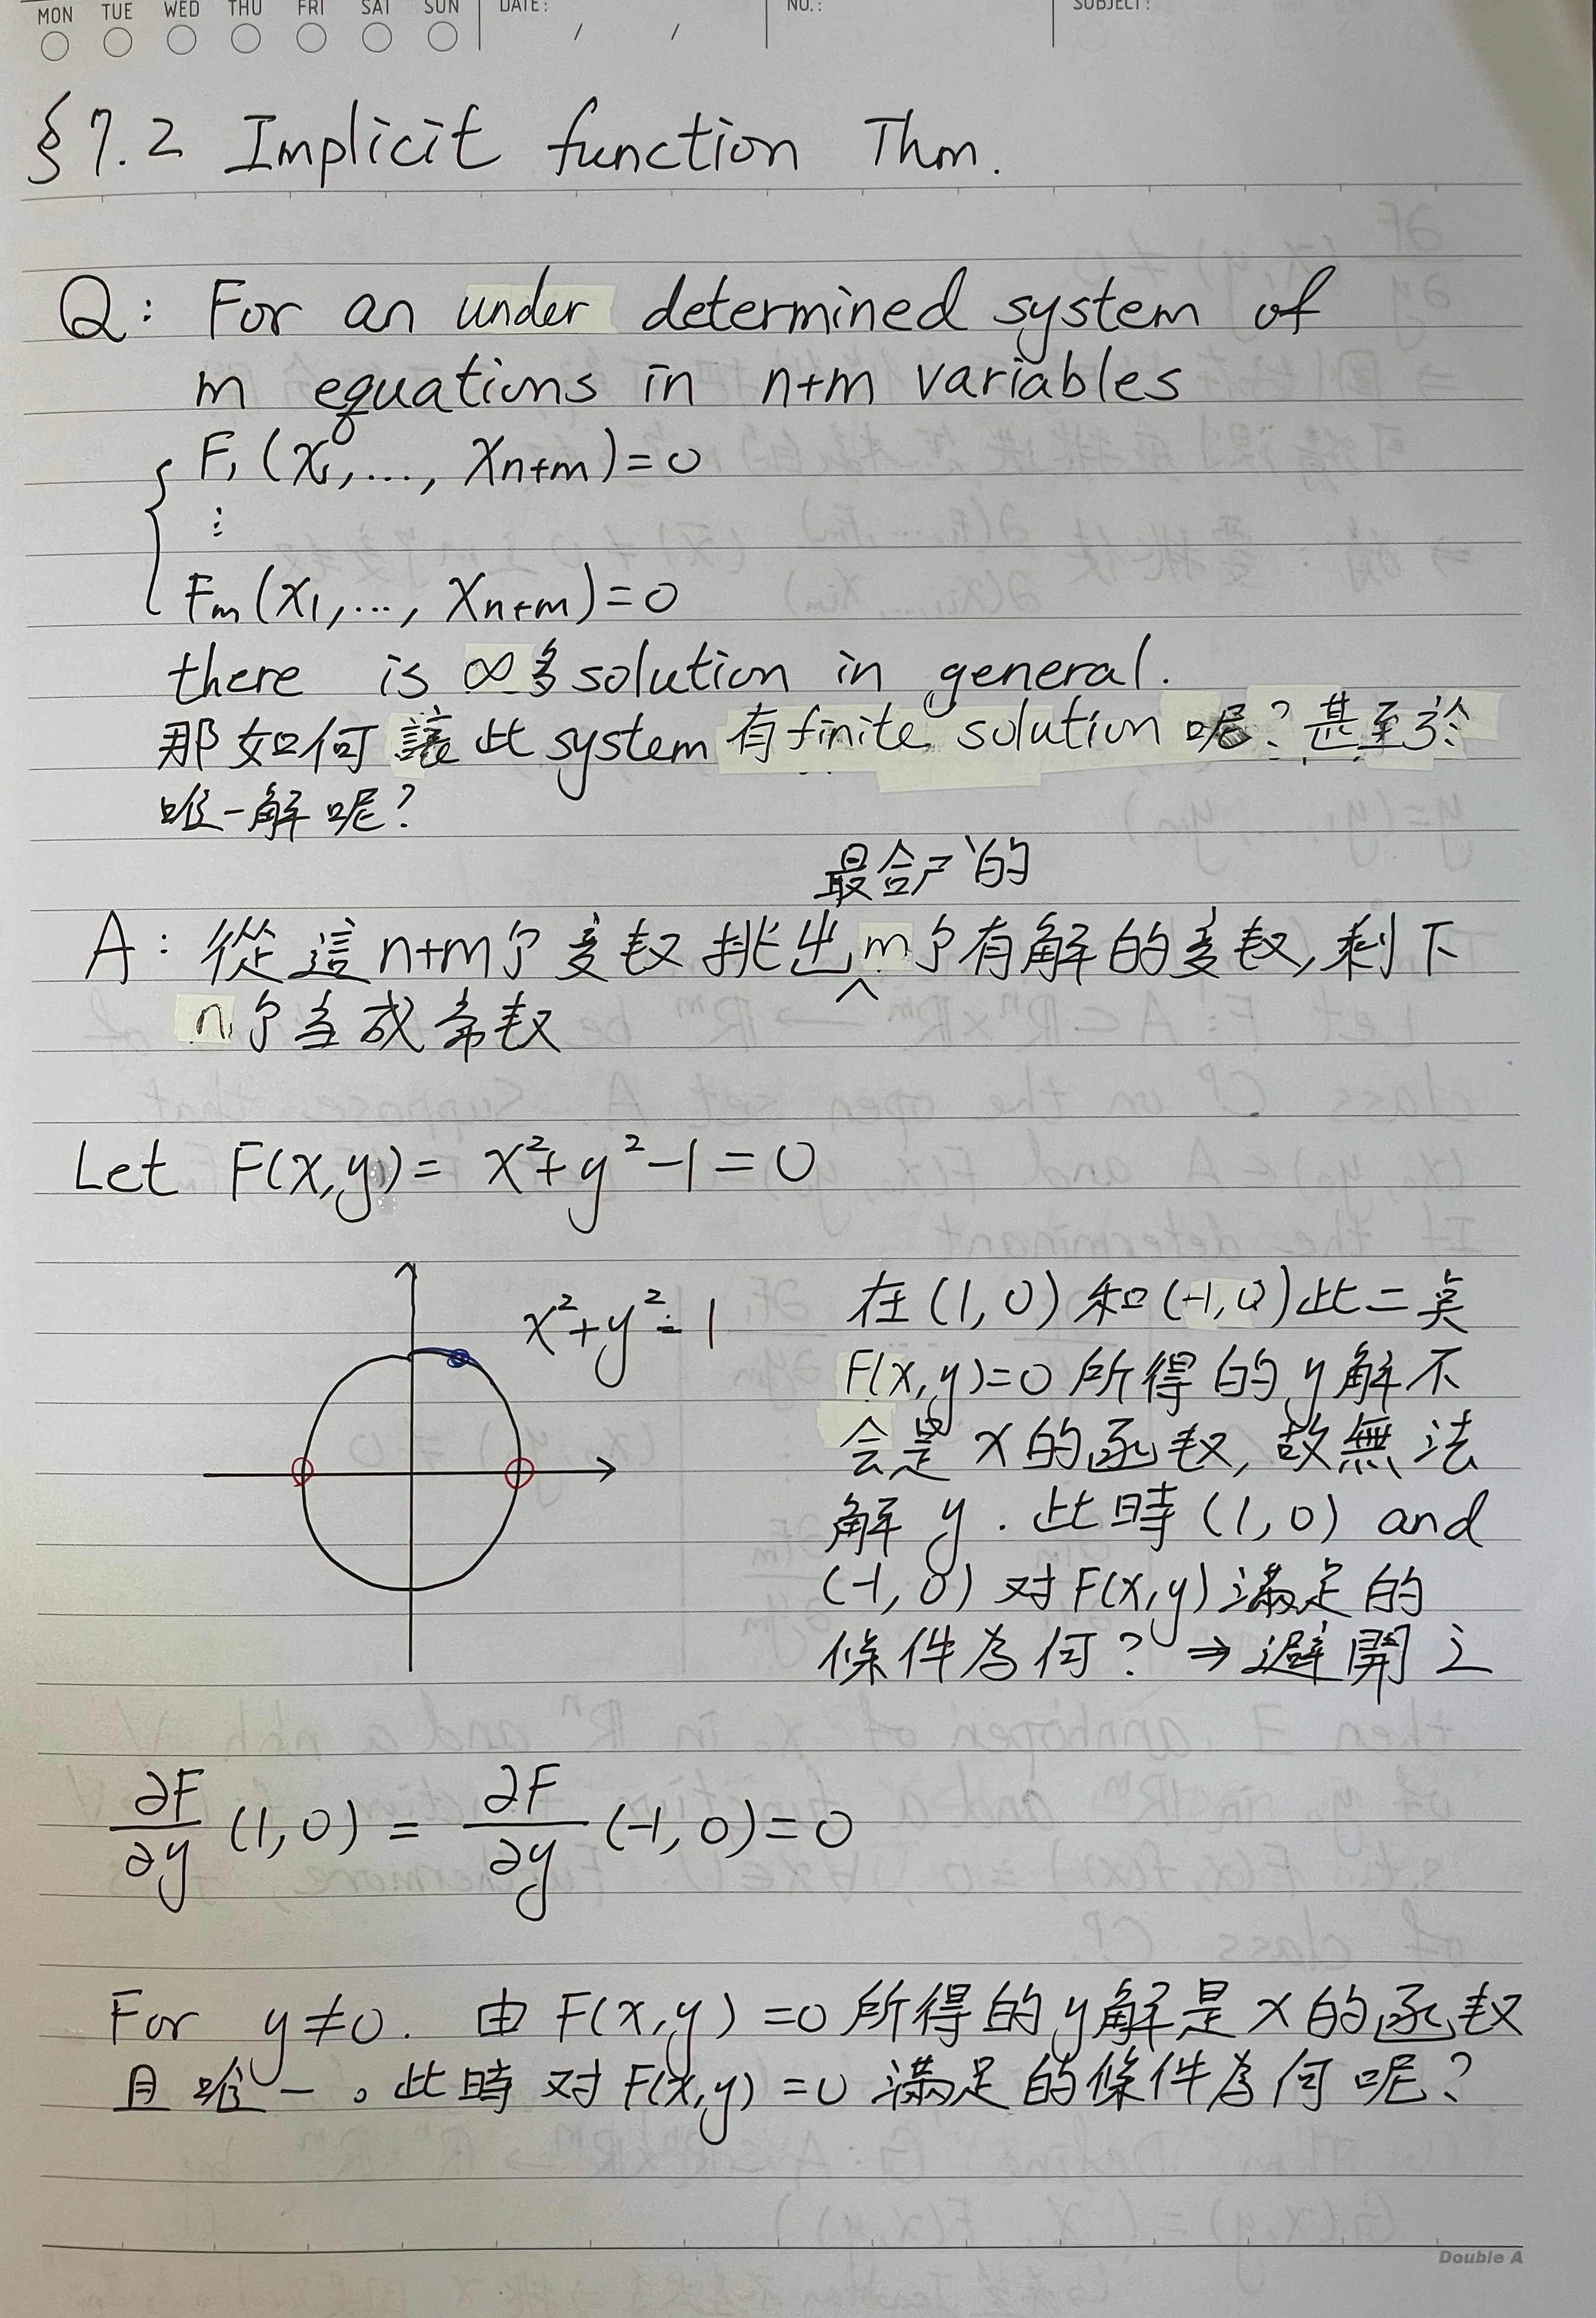 MON TUE WED THU FRI SAT SUN DATE: / / NO.: SUBJECT:
§7.2 Implicit function Thm.
Q: For an under determined system of
m equations in n+m variables
F₁(x₁,..., xn+m)=0
⋮
Fm(x₁,..., xn+m)=0
there is ∞多 solution in general.
那如何讓此system有finite solution呢?甚至於
唯一解呢?
最合适的
A: 從這n+m个变数挑出m个有解的变数,剩下
n个当成常数
Let F(x,y)= x²+y²-1=0
x²+y²=1
在(1,0)和(-1,0)此二点
F(x,y)=0所得的y解不
会是x的函数,故無法
解y. 此時(1,0) and
(-1,0)对F(x,y)滿足的
條件為何? ⇒避開之
∂F/∂y (1,0) = ∂F/∂y (-1,0)=0
For y≠0. 由F(x,y)=0所得的y解是x的函数
且唯一。此時对F(x,y)=0滿足的條件為何呢?
Double A